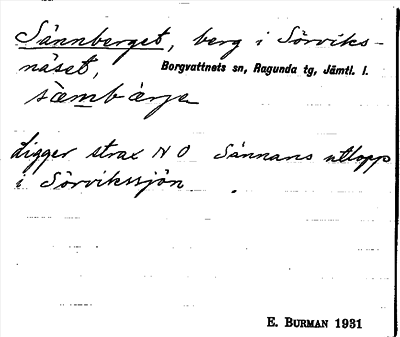 Sännberget, berg i Sörviks-
näset, Borgvattnets sn, Ragunda tg, Jämtl. l.
sämbärje
Ligger strax N O Sännans utlopp
i Sörvikssjön.
E. BURMAN 1931